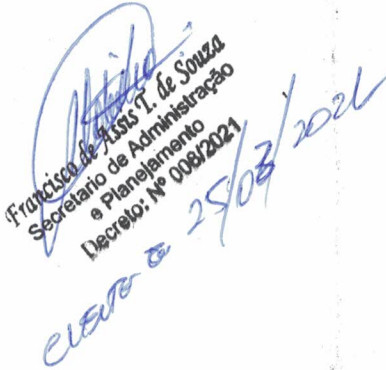 Francisco de Assis T. de Souza
Secretario de Administração
e Planejamento
Decreto: Nº 008/2021
25/03/2021